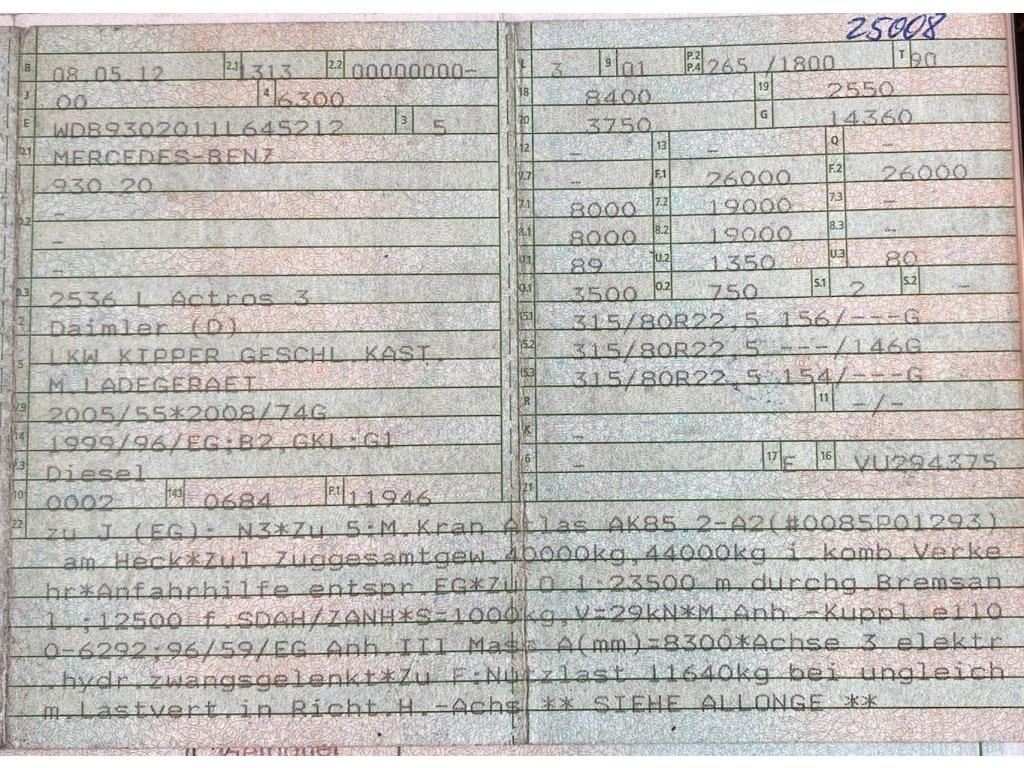 25008
B 08.05.12 2.1 1313 2.2 00000000-
J 00 4 6300
E WDB9302011L645212 3 5
D.1 MERCEDES-BENZ
930.20
D.2 -
-
-
D.3 2536 L Actros 3
2 Daimler (D)
5 LKW KIPPER GESCHL.KAST.
M.LADEGERAET
V.9 2005/55*2008/74G
14 1999/96/EG;B2,GKL:G1
P.3 Diesel
10 0002 14.1 0684 P.1 11946
L 3 9 01 P.2 P.4 265 /1800 T 90
18 8400 19 2550
20 3750 G 14360
12 - 13 - Q -
V.7 - F.1 26000 F.2 26000
7.1 8000 7.2 19000 7.3 -
8.1 8000 8.2 19000 8.3 -
U.1 89 U.2 1350 U.3 80
O.1 3500 O.2 750 S.1 2 S.2 -
15.1 315/80R22,5 156/---G
15.2 315/80R22,5 ---/146G
15.3 315/80R22,5 154/---G
R 11 -/-
K -
6 - 17 E 16 VU294375
21
22 zu J (EG): N3*Zu 5:M.Kran Atlas AK85.2-A2(#0085P01293)
am Heck*Zul.Zuggesamtgew.40000kg,44000kg i.komb.Verke
hr*Anfahrhilfe entspr.EG*Zu O.1:23500 m.durchg.Bremsan
l.;12500 f.SDAH/ZANH*S=1000kg,V=29kN*M.Anh.-Kuppl.e110
0-6292;96/59/EG Anh.III Mass A(mm)=8300*Achse 3 elektr
.hydr.zwangsgelenkt*Zu F:Nutzlast 11640kg bei ungleich
m.Lastvert.in Richt.H.-Achs ** SIEHE ALLONGE **